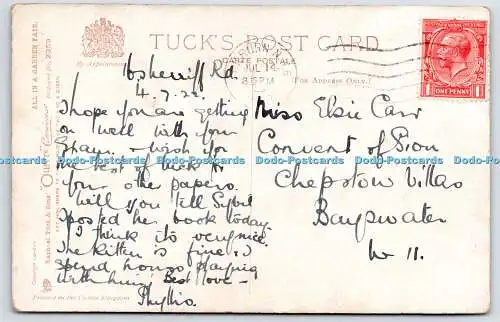 TUCK'S POST CARD
CARTE POSTALE
(FOR ADDRESS ONLY.)
By Appointment.
ALL IN A GARDEN FAIR.
"Oilette"
Raphael Tuck & Sons'
JUL
8.15PM
ONE PENNY
Sherriff Rd.
4.7.22.
I hope you are getting
on well with your
Exam – wish you
the best of luck for
your other papers.
Will you tell Sybil
I posted her book today.
I think its very nice.
The kitten is fine, I
spend hours playing
with him. Best love –
Phyllis.
Miss Elsie Carr
Convent of Sion
Chepstow Villas
Bayswater
W 11.
Dodo-Postcards Dodo-Postcards Dodo-Postcards Dodo-Postcards Dodo-Postcards
Printed in the United Kingdom